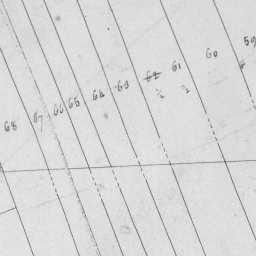 68 67 66 65 64 63 62 61 60 59
2 2